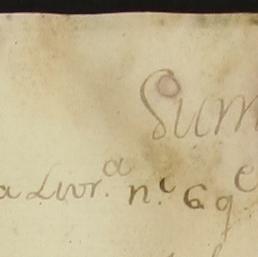 Sum
a Livr.ª n.º 6 q e